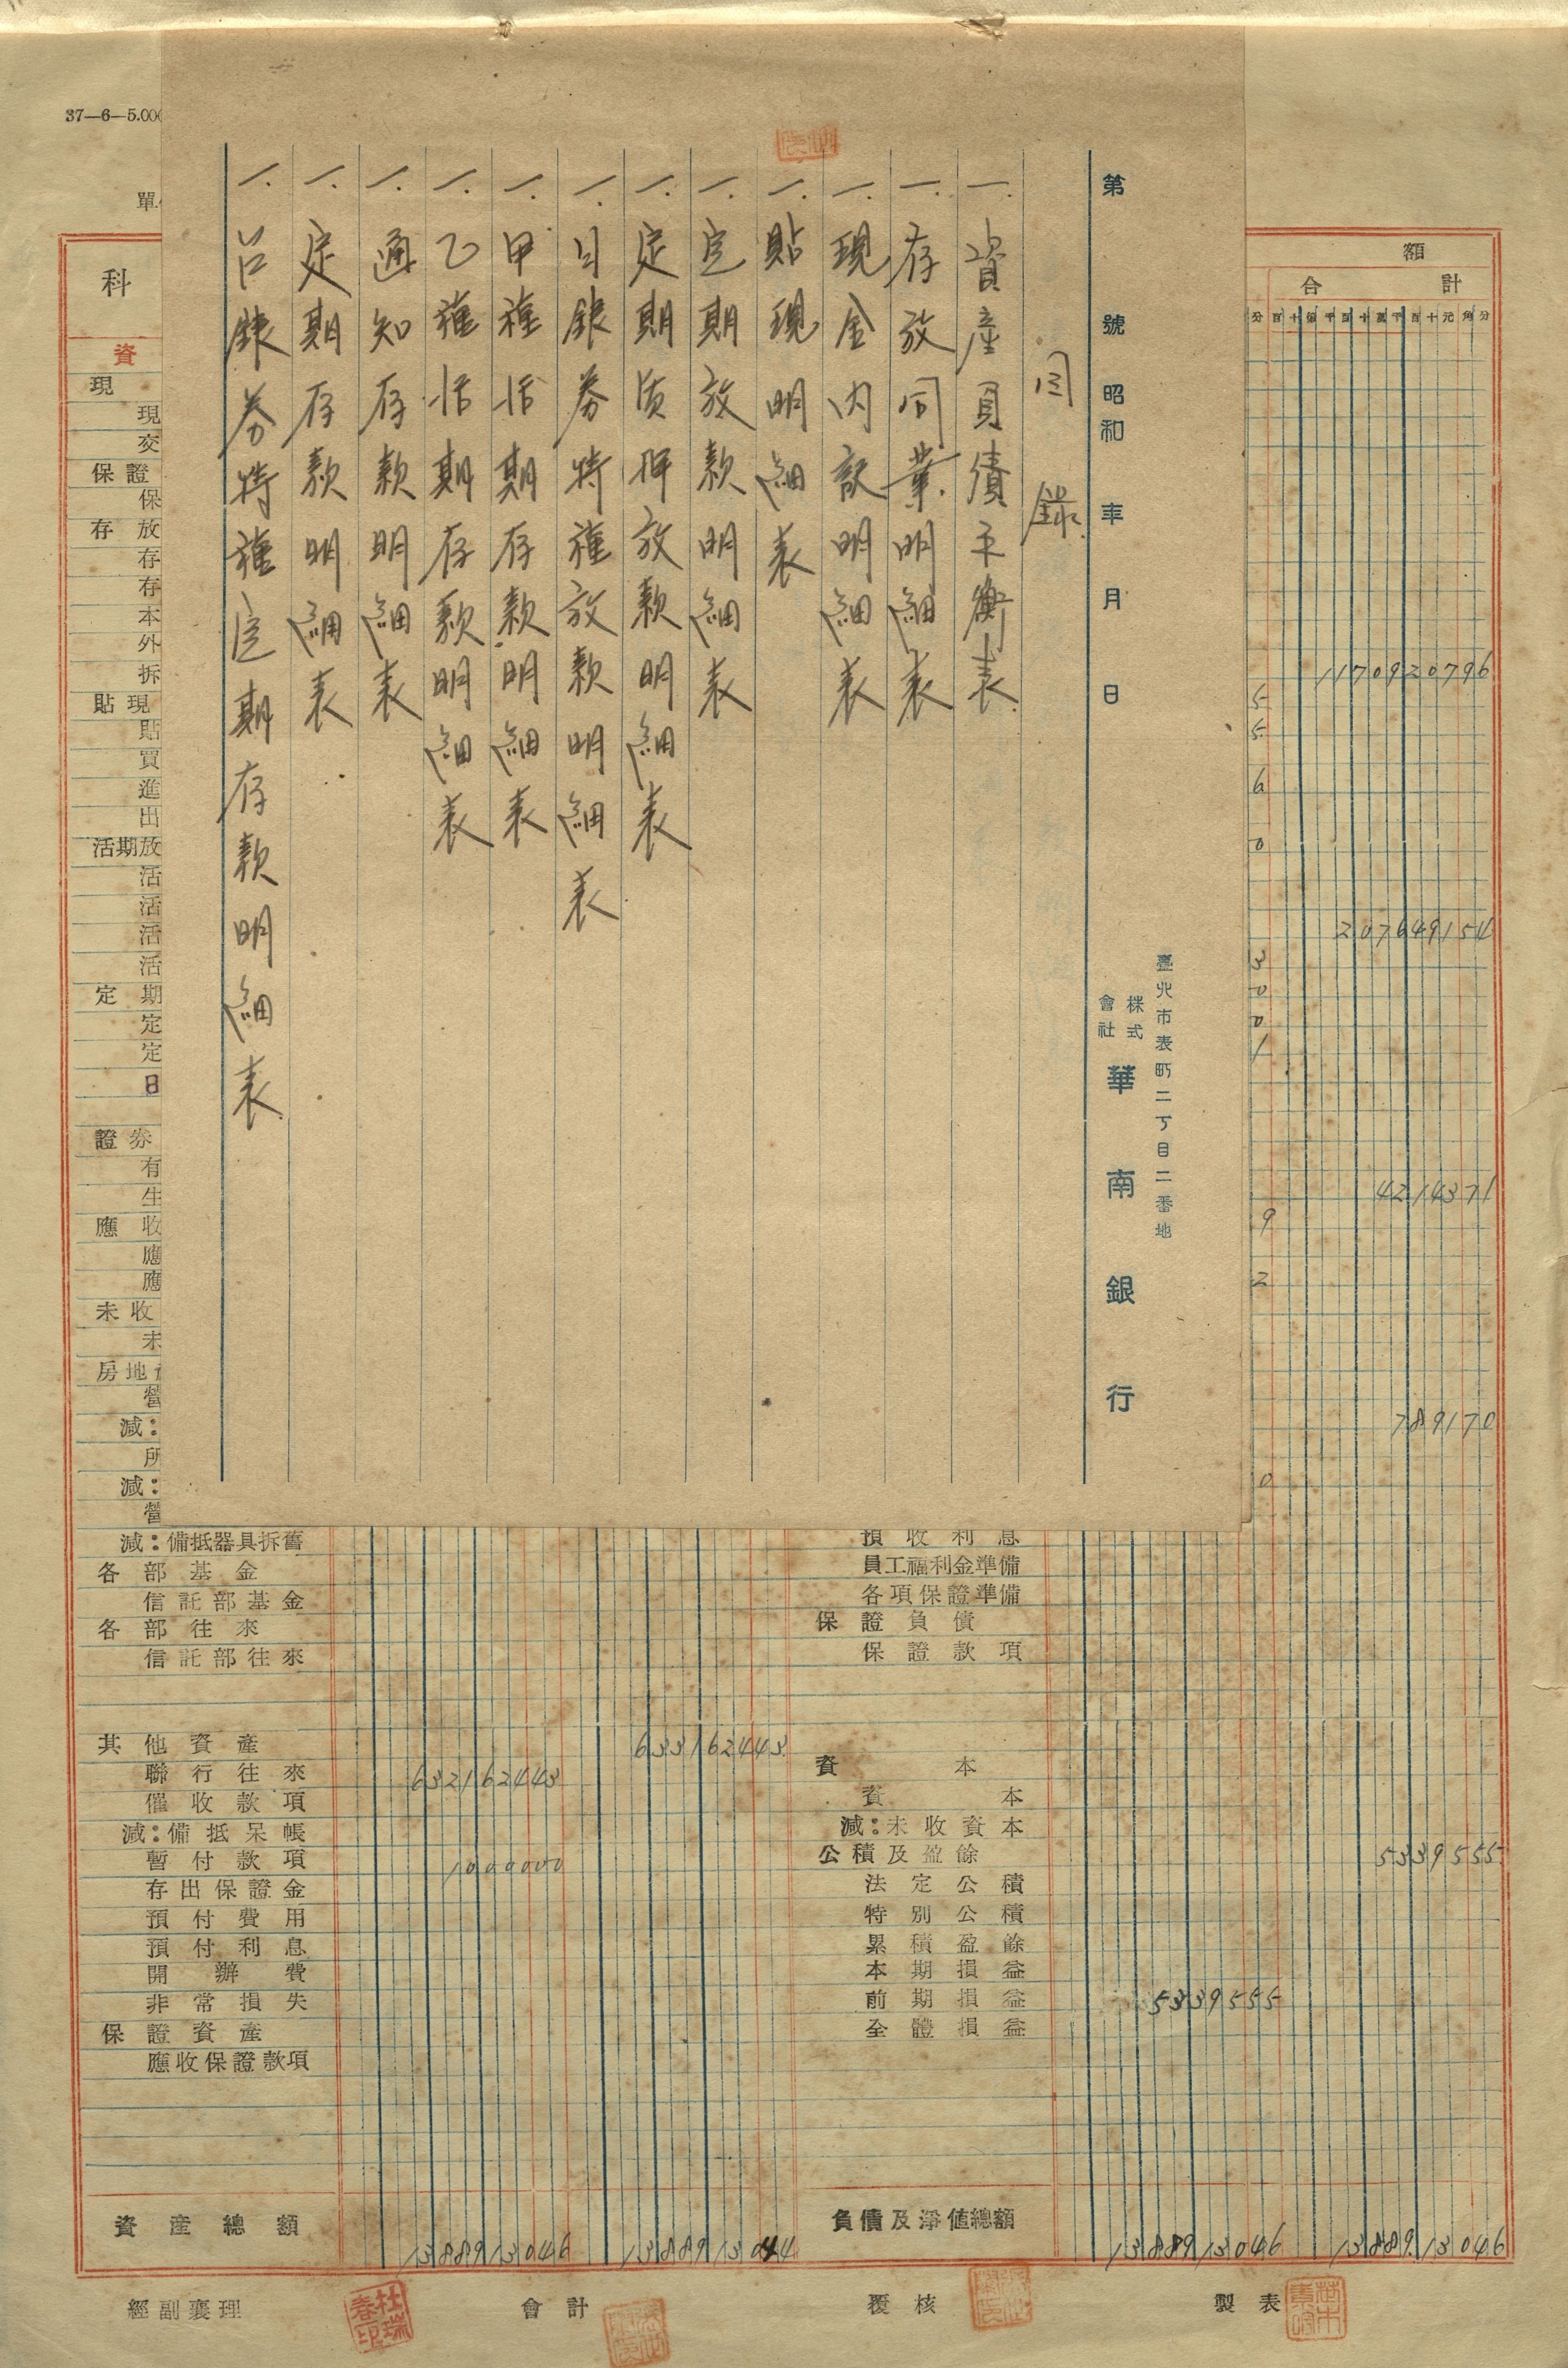 37—6—5.000
第 號 昭和 年 月 日
臺北市表町二丁目二番地
株式會社 華南銀行
目錄
一. 資產負債平衡表
一. 存放同業明細表
一. 現金內訳明細表
一. 貼現明細表
一. 定期放款明細表
一. 定期质押放款明細表
一. 日銀券特種放款明細表
一. 甲種活期存款明細表
一. 乙種活期存款明細表
一. 通知存款明細表
一. 定期存款明細表
一. 台銀券特種定期存款明細表
單
科
資
現
現
交
保證
保
存放
存
存
本
外
拆
貼現
貼
買
進
出
活期放
活
活
活
活
定期
定
定
日
證券
有
生
應收
應
應
未收
未
房地
營
減：
所
減：
營
減：備抵器具折舊
各部基金
信託部基金
各部往來
信託部往來
其他資產 633162443
聯行往來 632162443
催收款項
減：備抵呆帳
暫付款項 1000000
存出保證金
預付費用
預付利息
開辦費
非常損失
保證資產
應收保證款項
資產總額 1388913046 1388913044
額
合計
分 百 十 億 千 百 十 萬 千 百 十 元 角 分
1170920796
5
5
6
0
207649154
3
0
0
1
4214371
9
2
789170
0
預收利息
員工福利金準備
各項保證準備
保證負債
保證款項
資本
資本
減：未收資本
公積及盈餘 5339555
法定公積
特別公積
累積盈餘
本期損益
前期損益 5339555
全體損益
負債及淨值總額 1388913046 1388913046
經副襄理 杜瑞春印 會計 覆核 製表